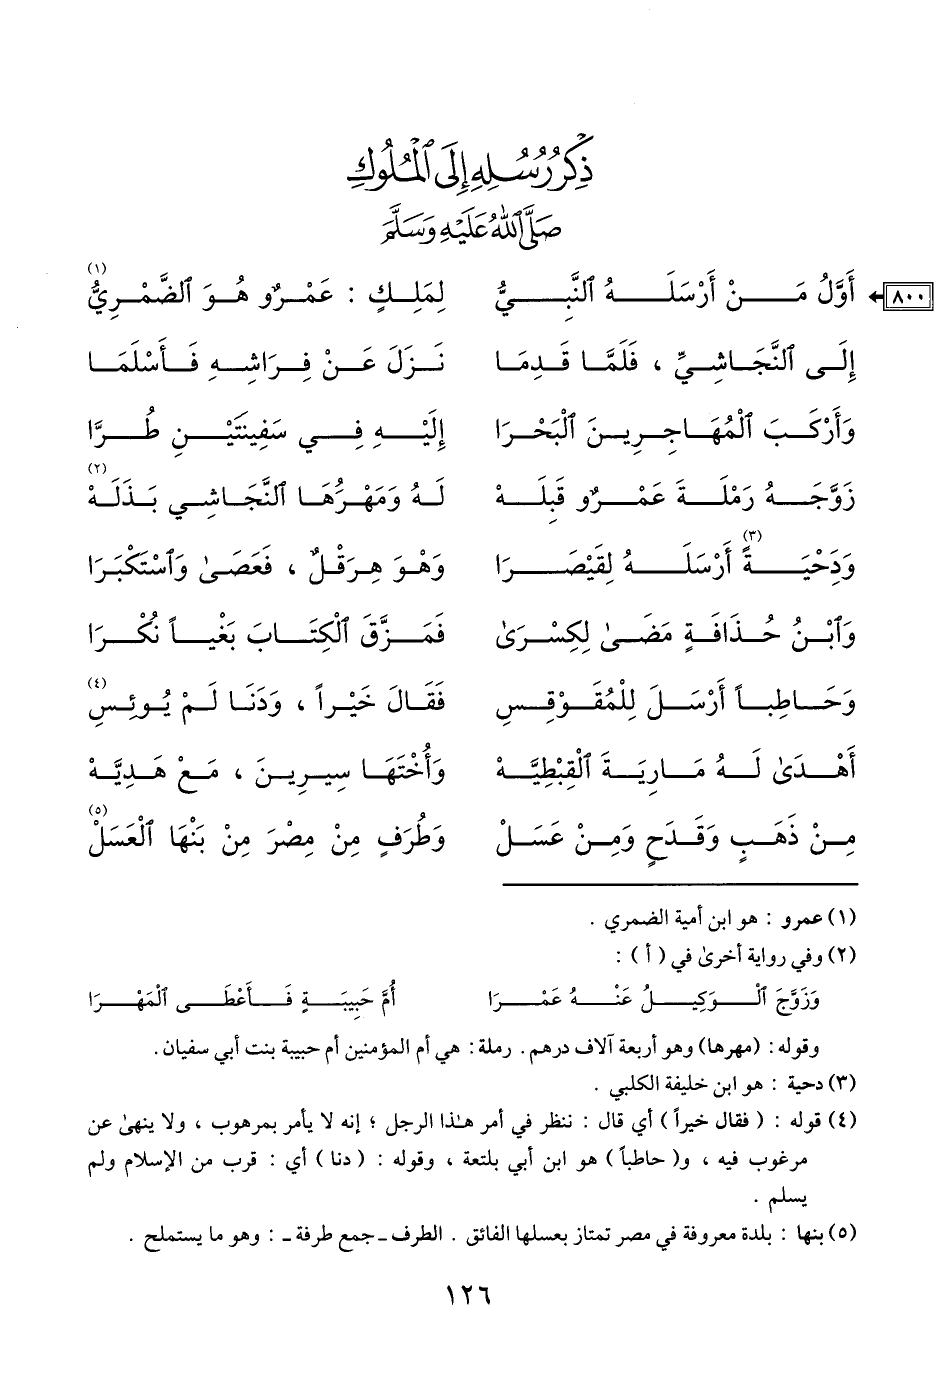 ذِكْرُ رُسُلِهِ إِلَى ٱلْمُلُوكِ
صَلَّى ٱللهُ عَلَيْهِ وَسَلَّمَ
٨٠٠ أَوَّلُ مَنْ أَرْسَلَهُ ٱلنَّبِيُّ لِمَلِكٍ : عَمْرٌو هُوَ ٱلضَّمْرِيُّ (١)
إِلَى ٱلنَّجَاشِيِّ ، فَلَمَّا قَدِمَا نَزَلَ عَنْ فِرَاشِهِ فَأَسْلَمَا
وَأَرْكَبَ ٱلْمُهَاجِرِينَ ٱلْبَحْرَا إِلَيْهِ فِي سَفِينَتَيْنِ طُرَّا
زَوَّجَهُ رَمْلَةَ عَمْرٌو قَبِلَهْ لَهُ وَمَهْرُهَا ٱلنَّجَاشِي بَذَلَهْ (٢)
وَدَحْيَةً (٣) أَرْسَلَهُ لِقَيْصَرَا وَهْوَ هِرَقْلٌ ، فَعَصَىٰ وَٱسْتَكْبَرَا
وَٱبْنُ حُذَافَةٍ مَضَىٰ لِكِسْرَىٰ فَمَزَّقَ ٱلْكِتَابَ بَغْياً نُكْرَا
وَحَاطِباً أَرْسَلَ لِلْمُقَوْقِسِ فَقَالَ خَيْراً ، وَدَنَا لَمْ يُوئِسِ (٤)
أَهْدَىٰ لَهُ مَارِيَةَ ٱلْقِبْطِيَّهْ وَأُخْتَهَا سِيرِينَ ، مَعْ هَدِيَّهْ
مِنْ ذَهَبٍ وَقَدَحٍ وَمِنْ عَسَلْ وَطُرَفٍ مِنْ مِصْرَ مِنْ بَنْهَا ٱلْعَسَلْ (٥)
(١) عمرو : هو ابن أمية الضمري .
(٢) وفي رواية أخرىٰ في ( أ ) :
وَزَوَّجَ ٱلْوَكِيلُ عَنْهُ عَمْرَا أُمَّ حَبِيبَةٍ فَأَعْطَى ٱلْمَهْرَا
وقوله : (مهرها) وهو أربعة آلاف درهم. رملة : هي أم المؤمنين أم حبيبة بنت أبي سفيان.
(٣) دحية : هو ابن خليفة الكلبي .
(٤) قوله : ( فقال خيراً ) أي قال : ننظر في أمر هٰذا الرجل ؛ إنه لا يأمر بمرهوب ، ولا ينهىٰ عن
مرغوب فيه ، و( حاطباً ) هو ابن أبي بلتعة ، وقوله : ( دنا ) أي : قرب من الإسلام ولم
يسلم .
(٥) بنها : بلدة معروفة في مصر تمتاز بعسلها الفائق . الطرف ـ جمع طرفة ـ : وهو ما يستملح .
١٢٦